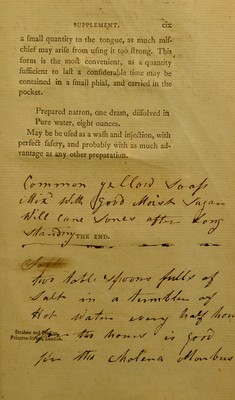 SUPPLEMENT. cix
a small quantity to the tongue, as much mif-
chief may arise from using it too strong. This
form is the most convenient, as a quantity
sufficient to last a considerable time may be
contained in a small phial, and carried in the
pocket.
Prepared natron, one dram, dissolved in
Pure water, eight ounces.
May be be used as a wash and injection, with
perfect safety, and probably with as much ad-
vantage as any other preparation.
Common yellow Soap
Mix With Good Moist Sugar
Will Cure Sores after Long
Standing
THE END.
two table Spoons fulls of
Salt in a tumbler of
Hot Water every half hour
Strahan and
Printers-Street, London.
for two hours is good
for the Cholera Morbus